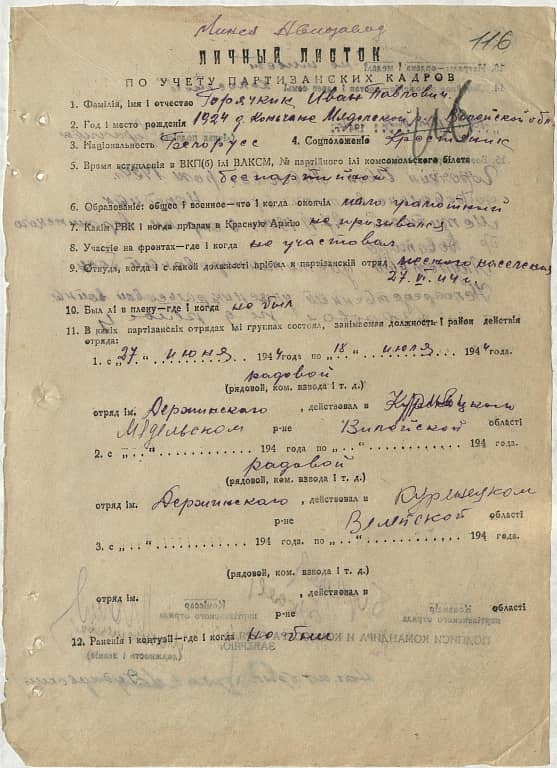 Минск Авиазавод
116
ЛИЧНЫЙ ЛИСТОК
ПО УЧЕТУ ПАРТИЗАНСКИХ КАДРОВ
1. Фамілія, імя і отчество Иван Павлович
2. Год і место рождения 1924 д.
3. Національность Белорусс 4. Соцположеніе
5. Время вступлення в ВКП(б) ілі ВЛКСМ, № партійного ілі комсомольского білета
беспартийный
6. Образованіе: общее і военное—что і когда окончіл мало грамотный
7. Какім РВК і когда прізван в Красную Армію не призывался
8. Участіе на фронтах—где і когда не участвовал
9. Откуда, когда і с какой должності прібыл в партізанскій отряд местного населения
27.VI.44 г.
10. Был лі в плену—где і когда не был
11. В какіх партізанскіх отрядах ілі группах состоял, занімаемая должность і район действія
отряда:
1. с „27 “ июня 1944 года по „18 “ июля 1944 года.
радовой
(рядовой, ком. взвода і т. д.)
отряд ім. Держинского , действовал в
Мядельском р-не Вилейской області
2. с „ “ 194 года по „ “ 194 года.
радовой
(рядовой, ком. взвода і т. д.)
отряд ім. Держинского , действовал в
р-не области
3. с „ “ 194 года по „ “ 194 года.
(рядовой, ком. взвода і т. д.)
отряд ім. , действовал в
р-не області
12. Раненія і контузіі—где і когда не был